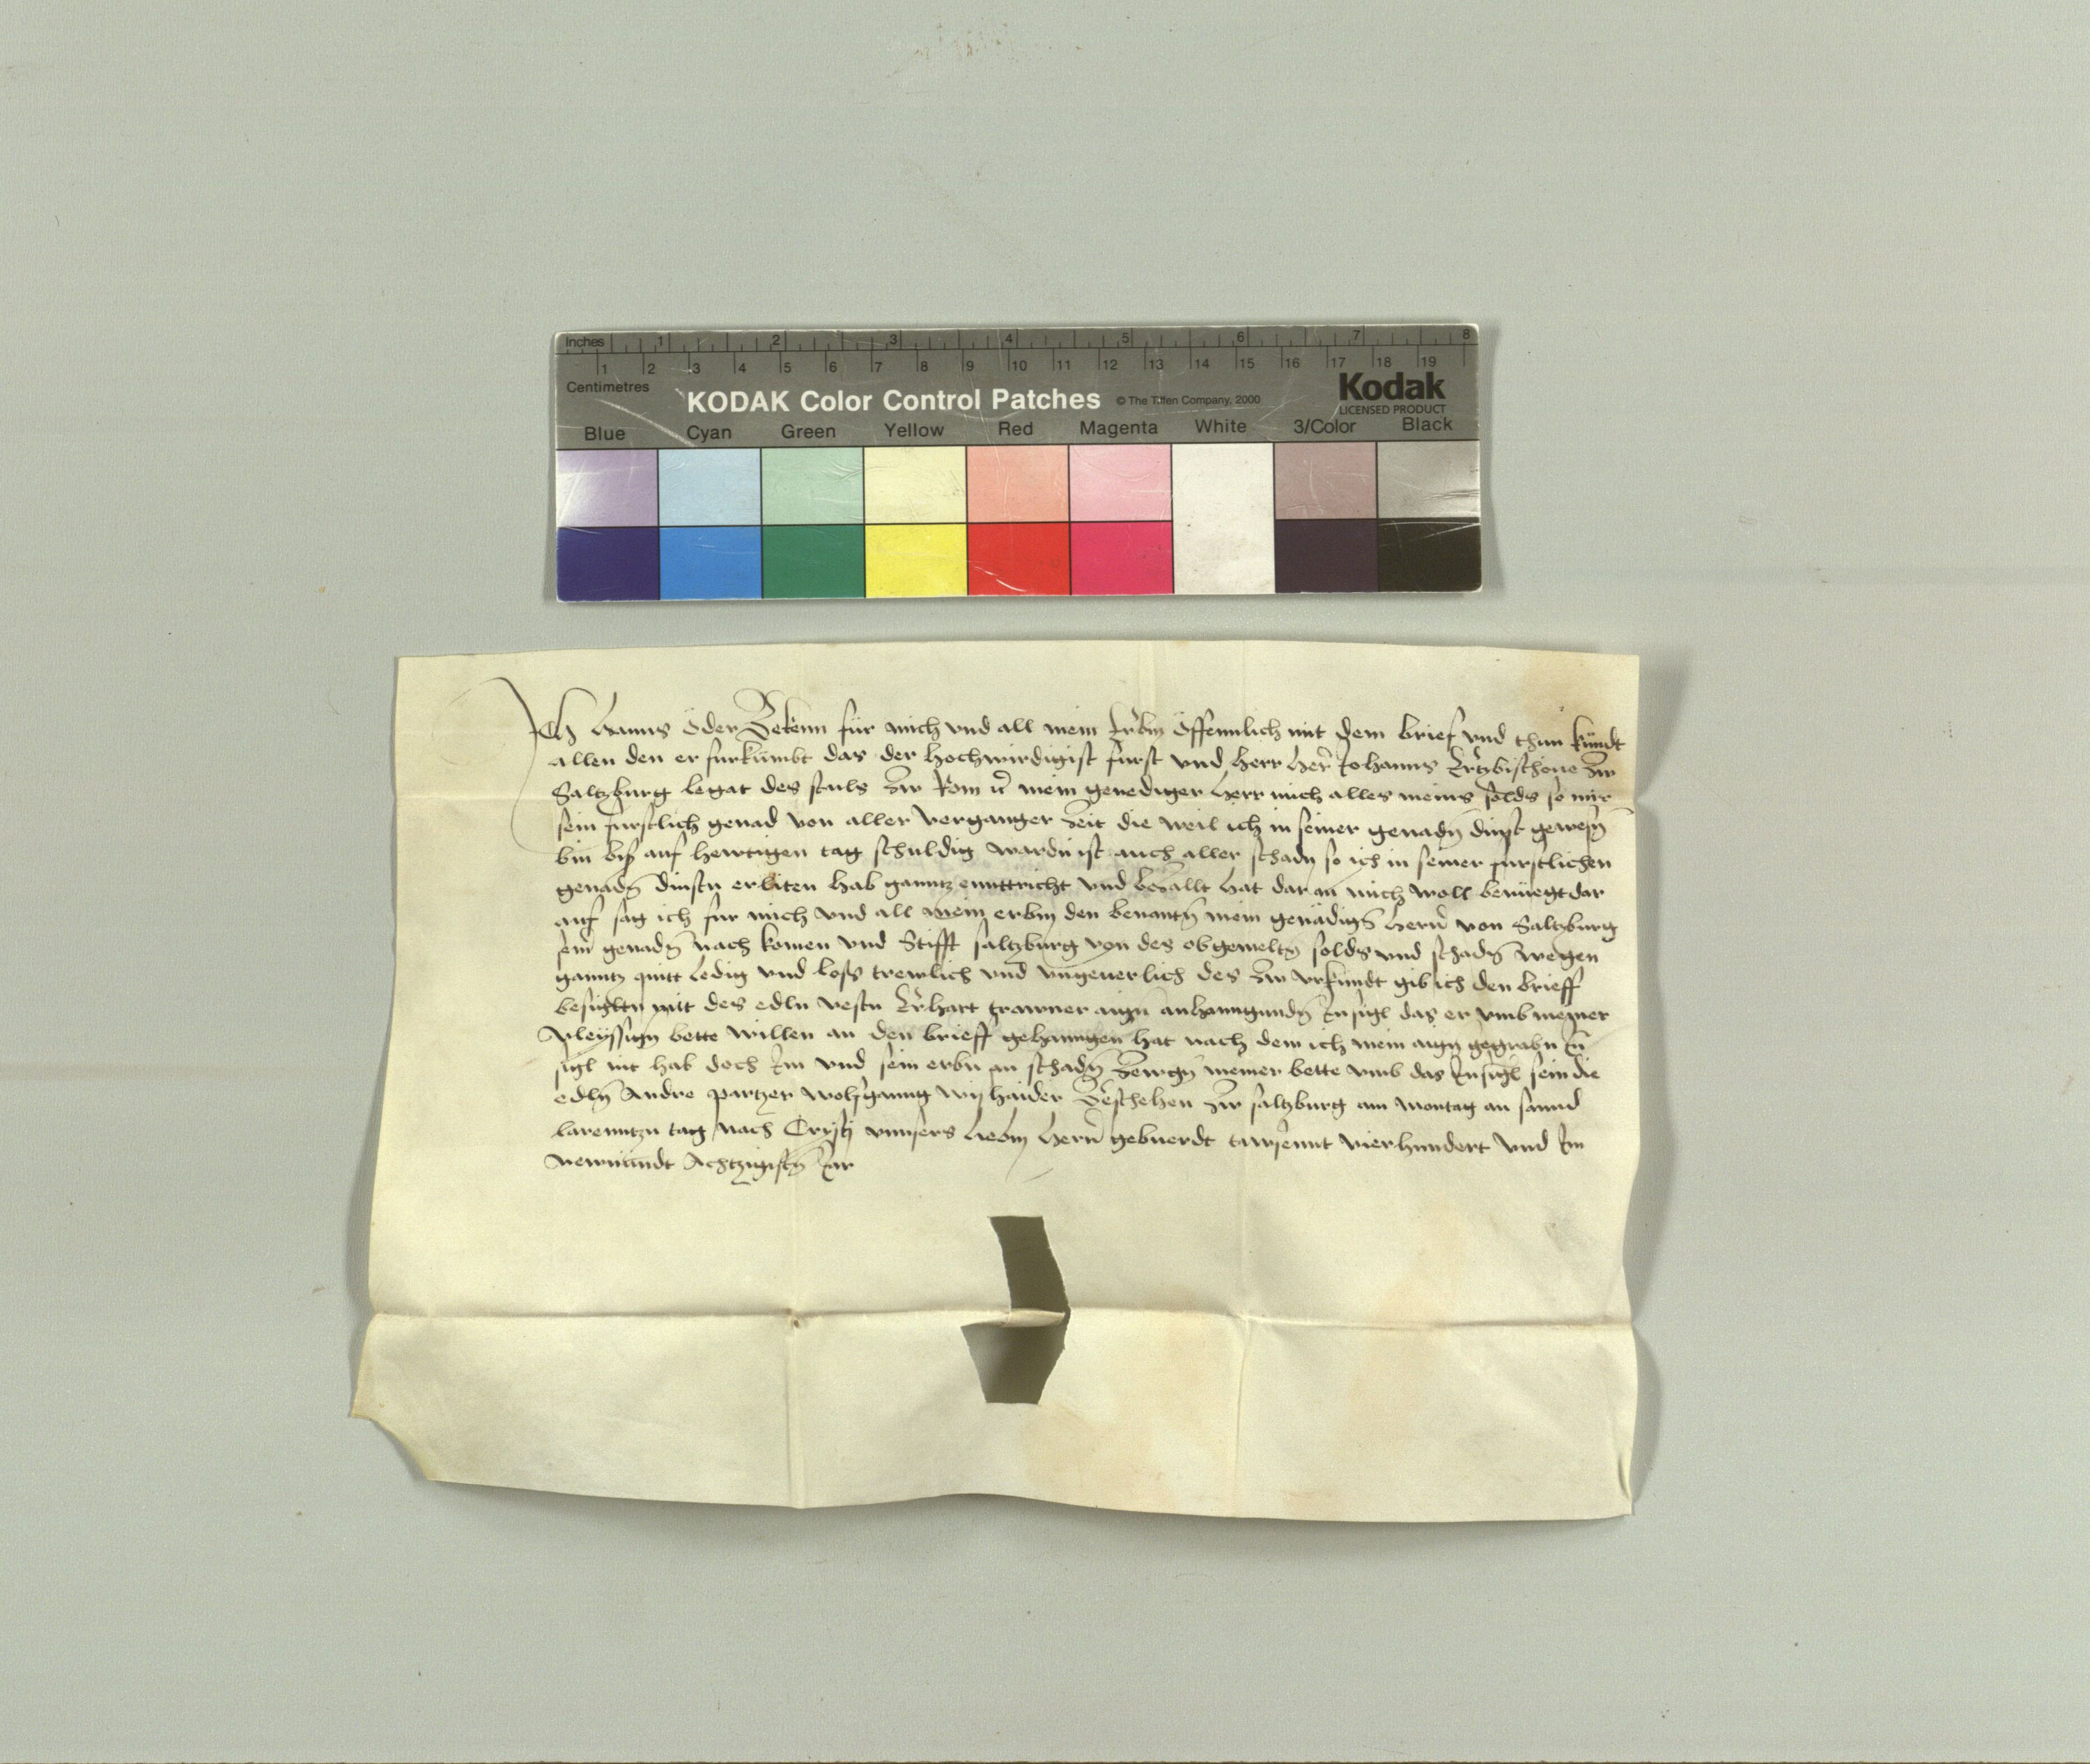 Inches 1 2 3 4 5 6 7 8
1 2 3 4 5 6 7 8 9 10 11 12 13 14 15 16 17 18 19
Centimetres
KODAK Color Control Patches © The Tiffen Company, 2000 Kodak
LICENSED PRODUCT
Blue Cyan Green Yellow Red Magenta White 3/Color Black
Ich Hanns Öder Bekenn für mich vnd all mein Erbn̄ öffennlich mit dem brief vnd thun kundt
allen den er furkumbt das der hochwirdigist fürst vnd herr her̄ Johanns Ertzbischoue zw
Saltzburg legat des stuls zw Rom mein genediger herr mich alles meins solds so mir
sein furstlich genad von aller verganger zeit die weil ich in seiner genadn̄ dinst gewesn̄
bin biß auf hewtigen tag schuldig wardn ist auch aller schadn so ich in seiner furstlichen
genadn̄ dinstn erliten hab ganntz enttricht vnd beczallt hat dar an mich woll benüegt dar
auf sag ich fur mich vnd all mein erbn den benantn̄ mein genädign̄ hern̄ von Saltzburg
sein̄ genadn̄ nach komen vnd Stifft saltzburg von des obgemeltn̄ solds vnd schadn̄ wegen
ganntz quitt ledig vnd loss trewlich vnd vngeuerlich des zw vrkundt gib ich den brieff
besigltn mit des edln vestn Erhart trawner aign̄ anhanngundn̄ Insigl das er vmb meiner
vleyssign̄ bette willen an den brieff gehanngen hat nach dem ich mein aign gegrabn In̄
sigl nit hab doch Im vnd sein erbn an schadn̄ zewgn̄ meiner bette vmb das Insigl sein die
edln̄ Andre partzer wolfganng wishaider Geschehen zw saltzburg am montag an sannd
larenntzn tag nach Crysti vnnsers liebn hern̄ gebuerdt tawsennt vierhundert vnd Im
newnundt Achtzigistn̄ Jar